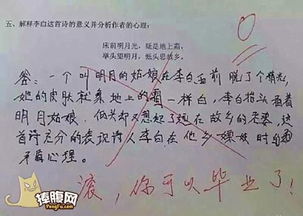 五、解释李白这首诗的意义并分析作者的心理:
床前明月光,疑是地上霜;
举头望明月,低头思故乡。
0
答:一个叫明月的姑娘在李白面前脱了个精光,
她的皮肤就象地上的霜一样白,李白抬头看着
明月姑娘,低头却又想起了她在故乡的老婆,这
首诗充分的表现诗人李白在他乡嫖妓时的
矛盾心理。
滚,你可以毕业了!
捧腹网
PengFu.com